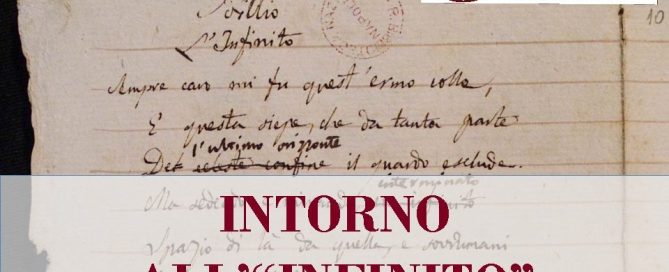 Idillio
10
L'Infinito
Sempre caro mi fu quest'ermo colle,
E questa siepe, che da tanta parte
l'ultimo orizzonte
Del celeste confine il guardo esclude.
interminato
Ma sedendo e mirando, un infinito
Spazio di là da quella, e sovrumani
INTORNO
ALL'“INFINITO”